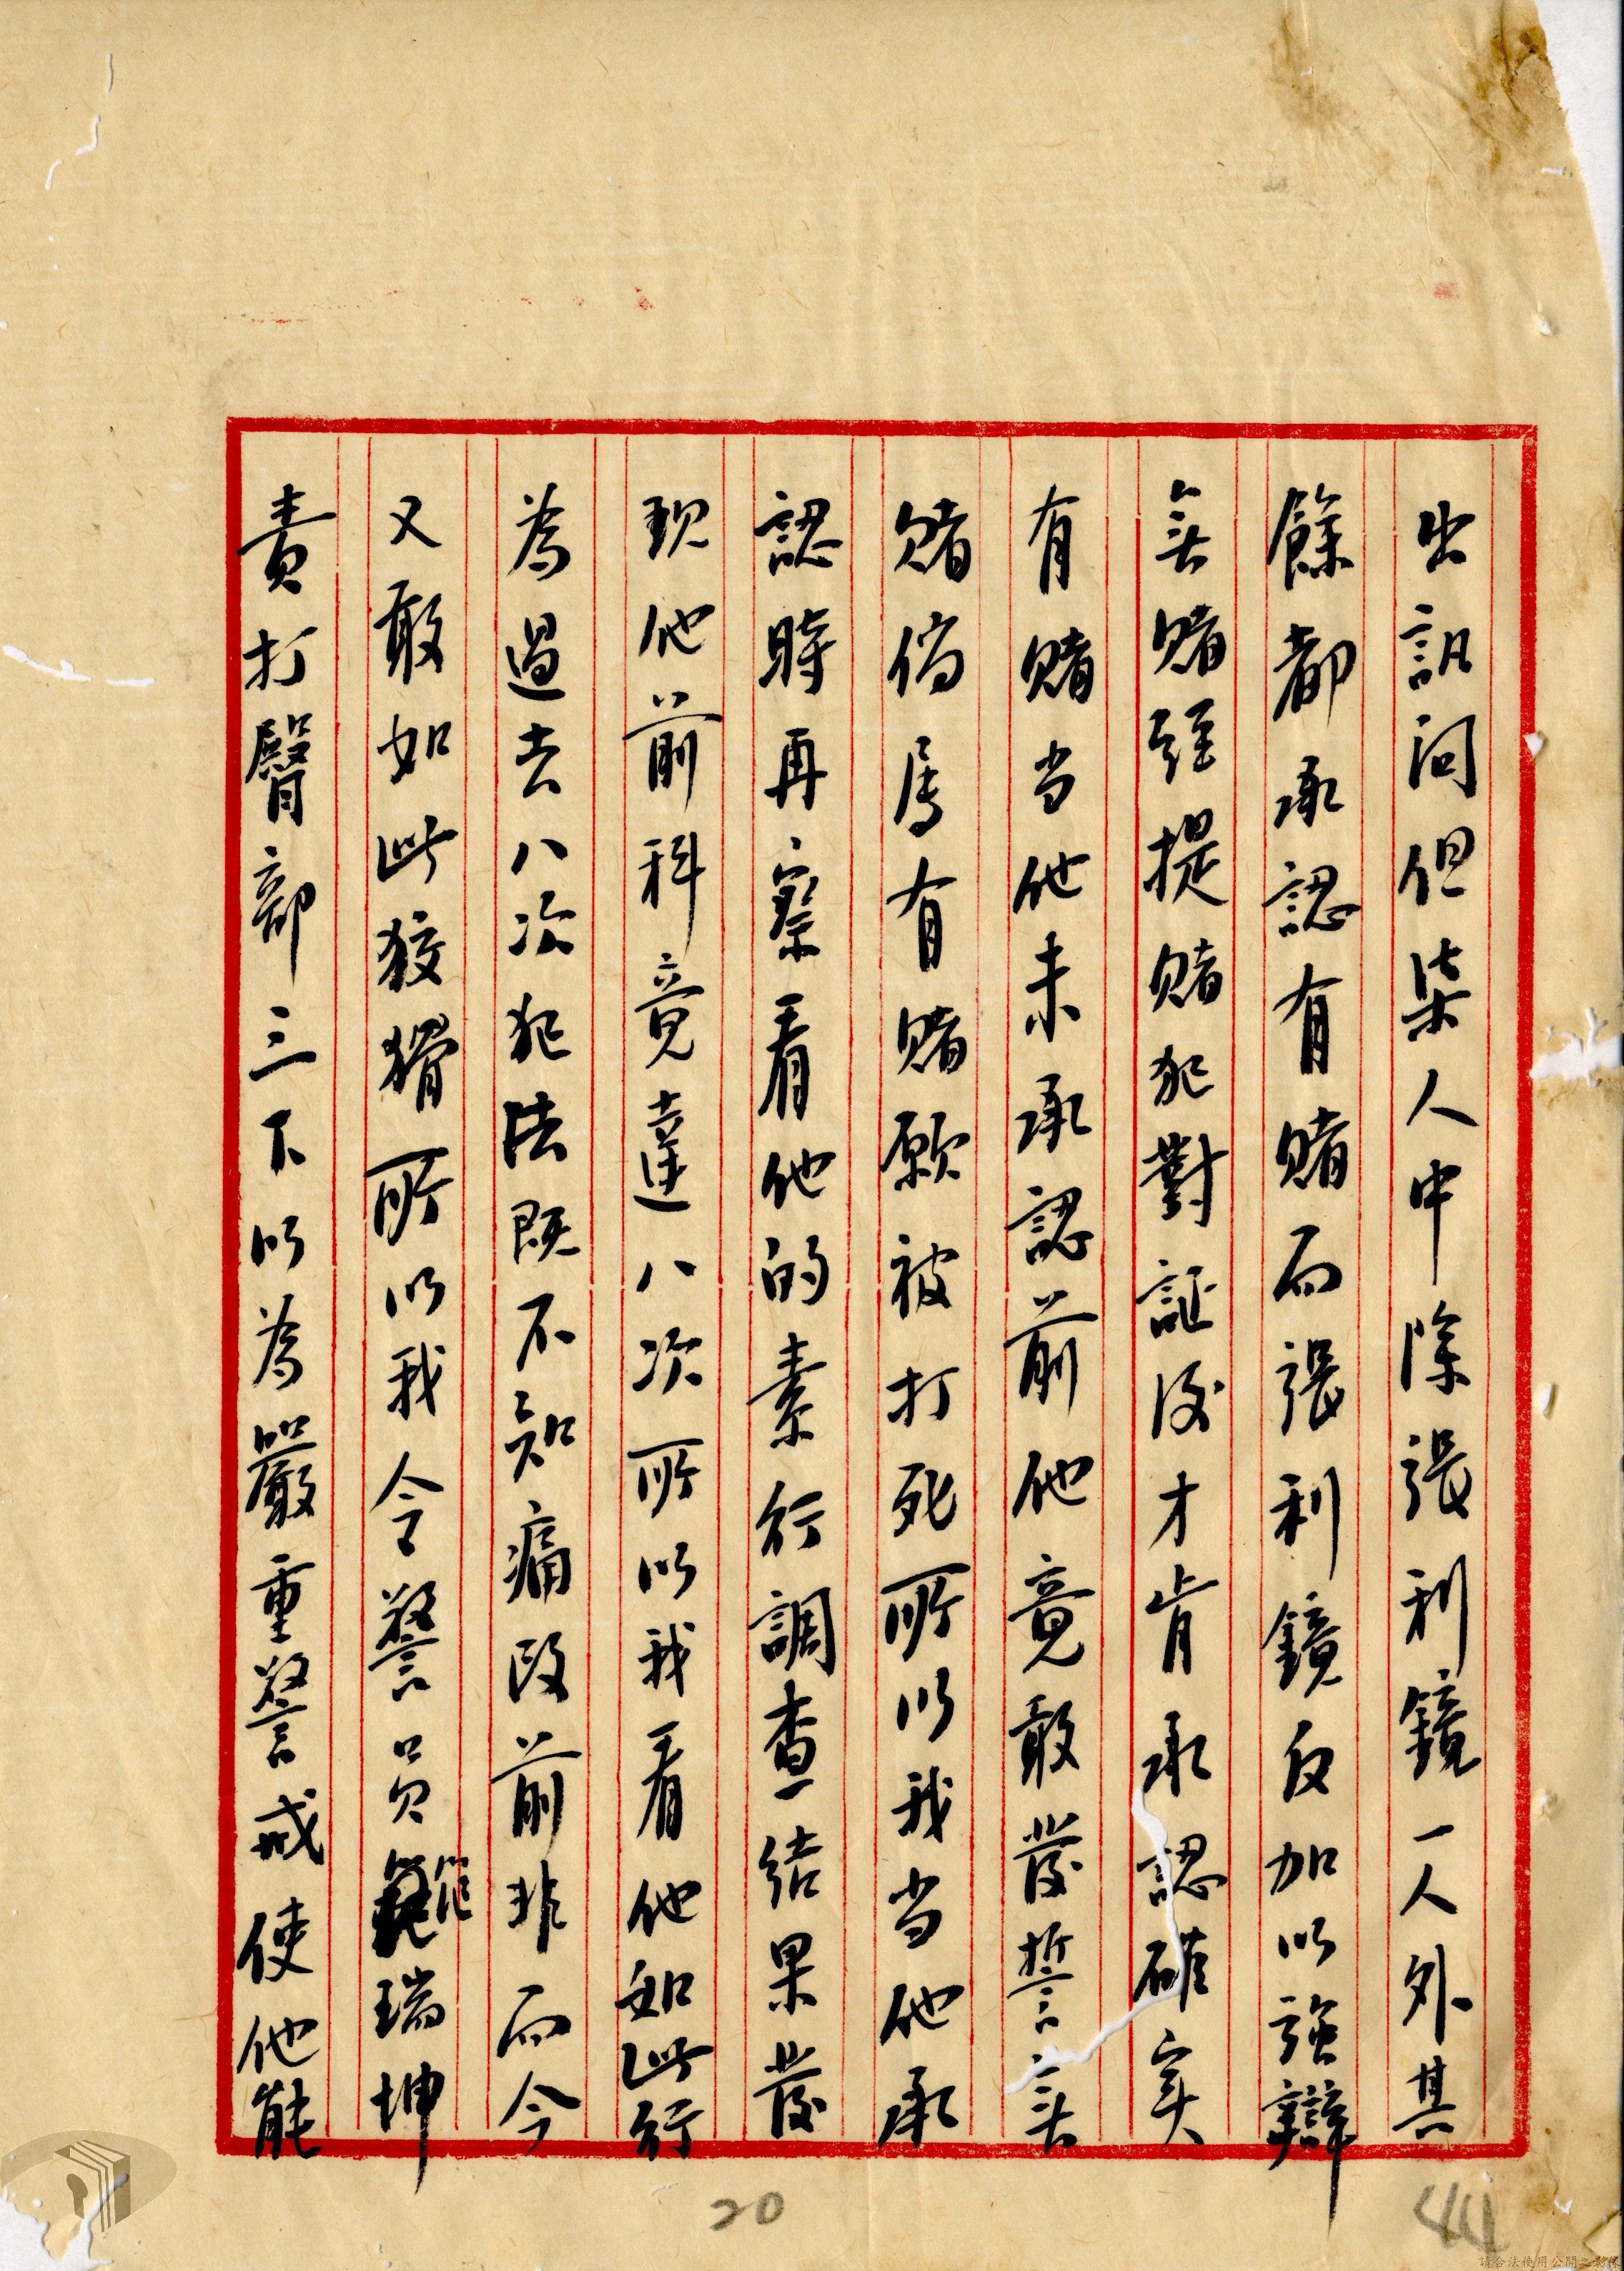 出訊问但柒人中除張利鏡一人外其
餘都承認有賭而張利鏡反加以強辯
无賭經提賭犯對証後才肯承認確实
有賭当他未承認前他竟敢發誓言无
賭倘属有賭愿被打死所以我当他承
認時再察看他的素行調查结果發
現他前科竟達八次所以我看他如此行
為過去八次犯法既不知痛改前非而今
又敢如此狡猾所以我令警员瑞坤
責打臀部三下以為嚴重警戒使他能
20
44
請合法使用公開之影像